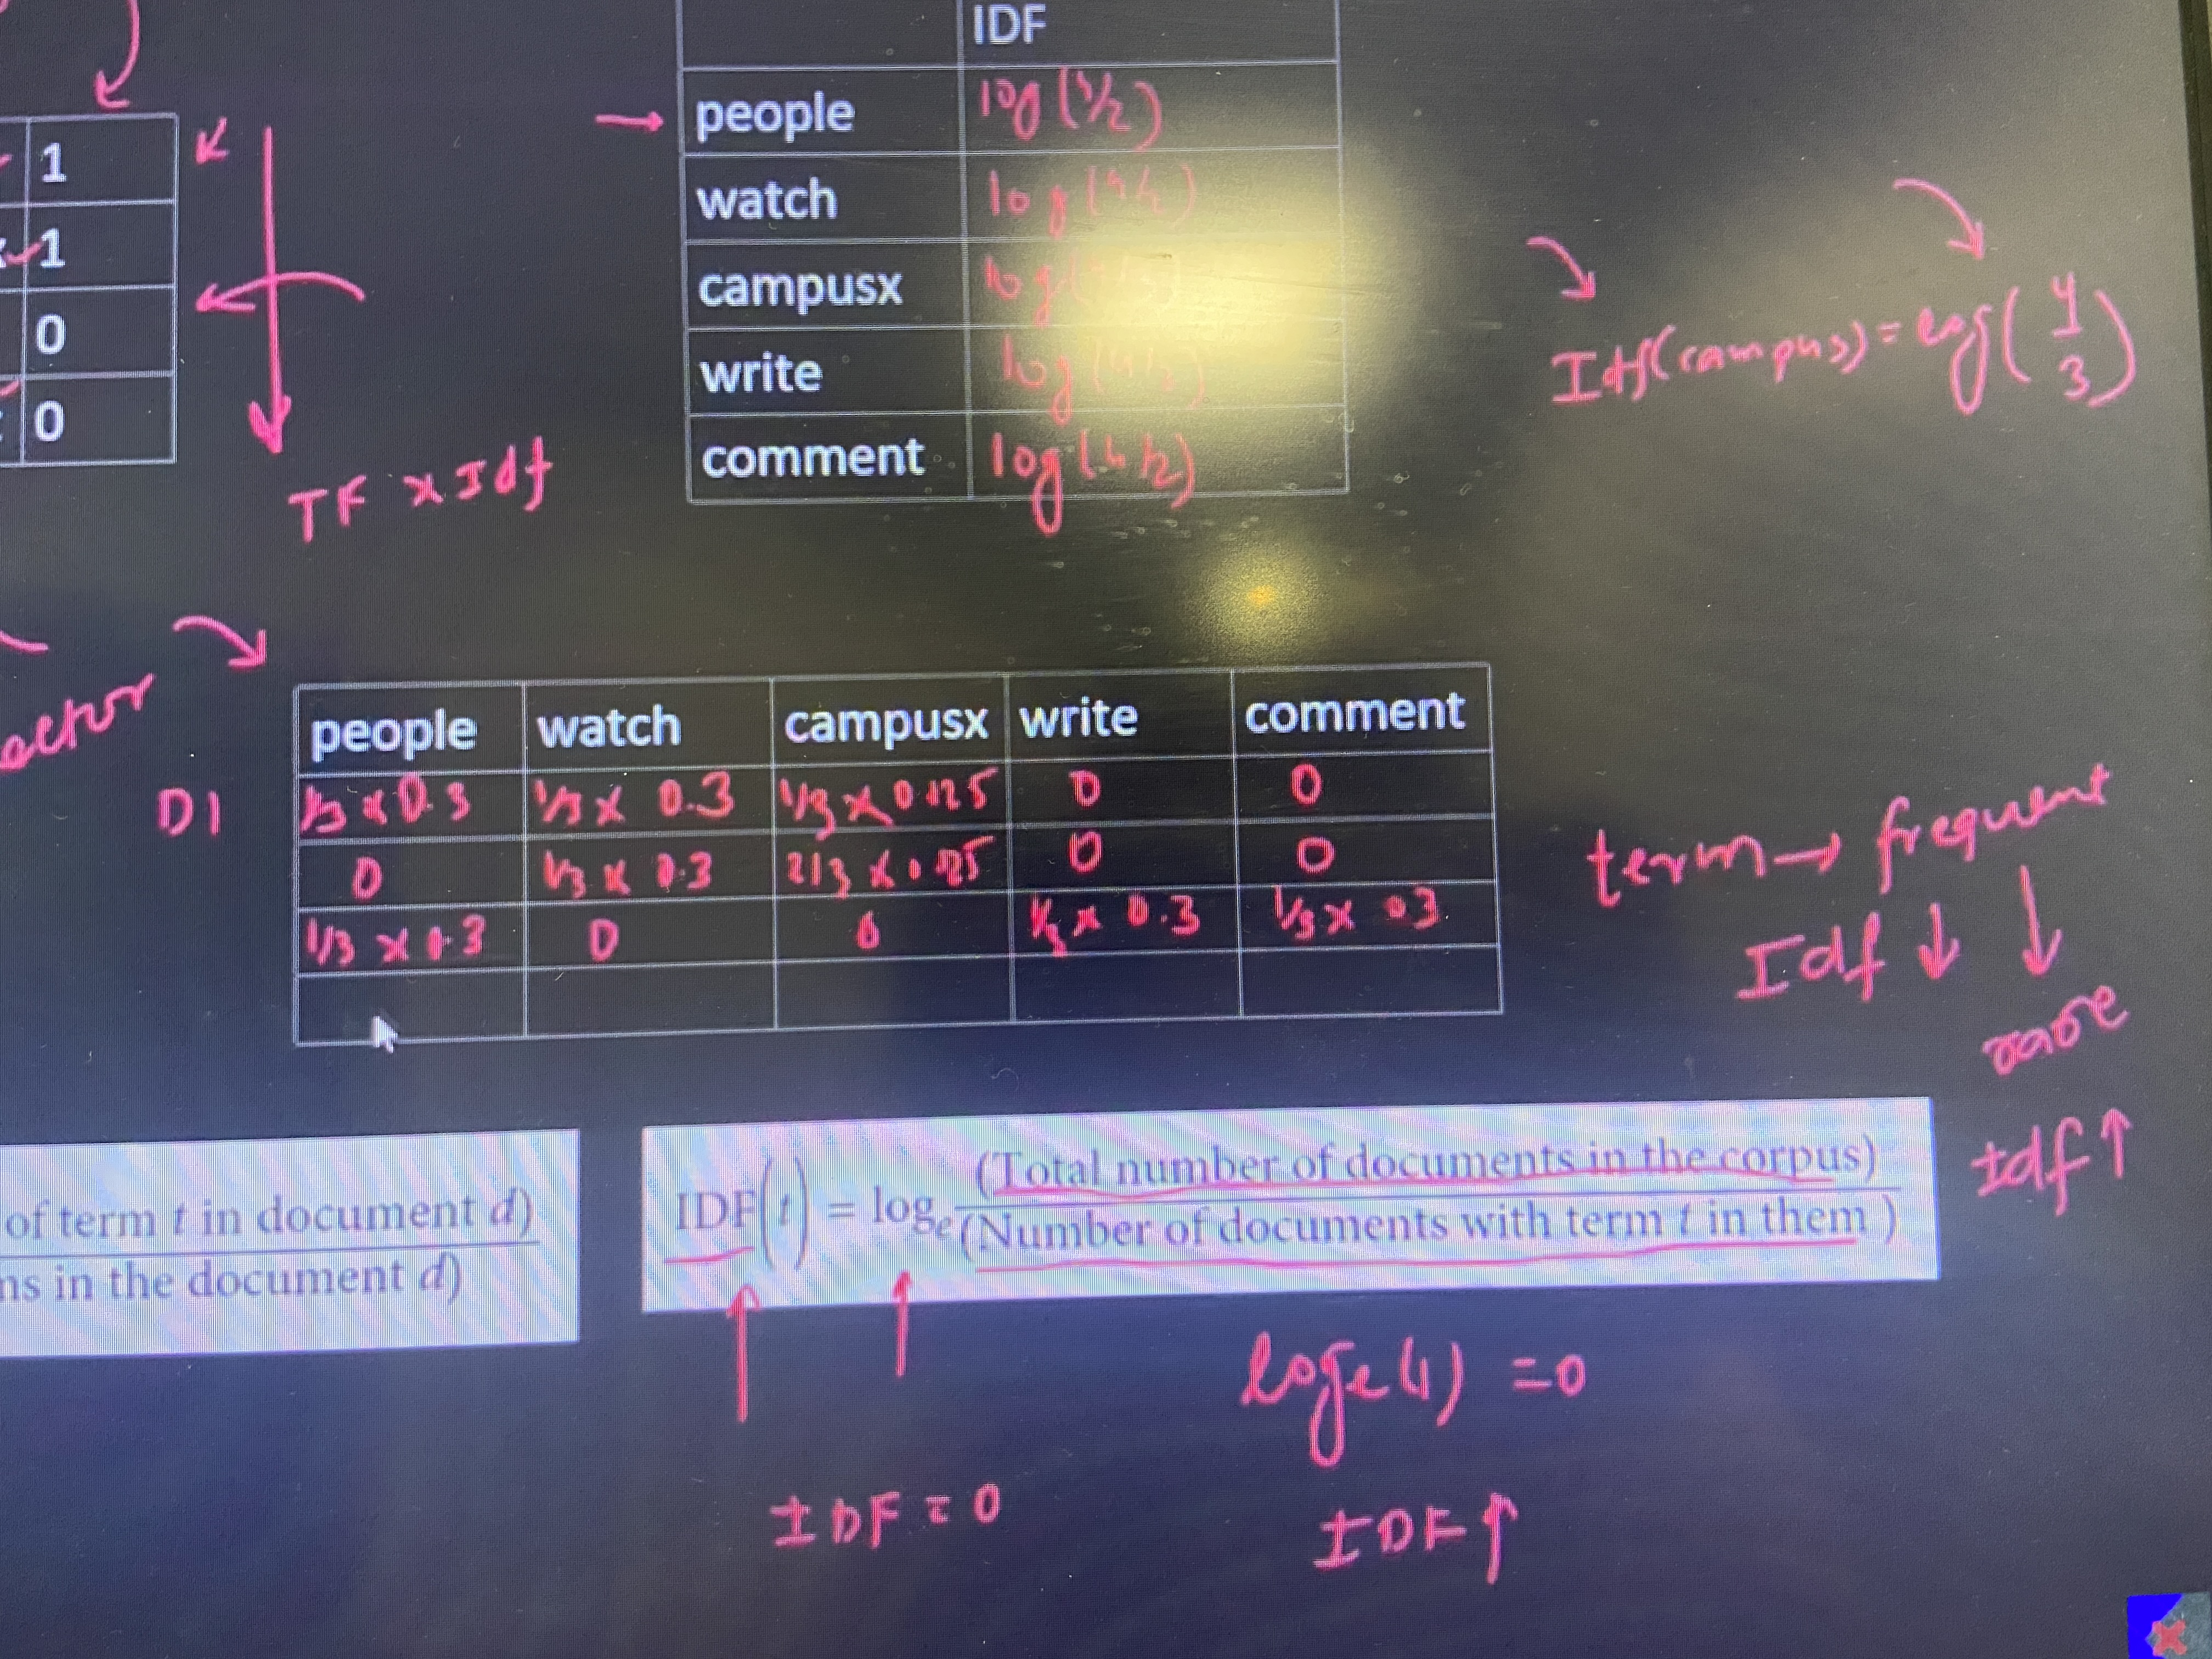 IDF
people log(4/2)
watch log(4/2)
campusx log(
write log(4/2)
comment log(4/2)
1
1
0
0
TF x Idf
Idf(campus) = log(4/3)
people watch campusx write comment
D1 1/3 x 0.3 1/3 x 0.3 1/3 x 0.125 0 0
0 1/3 x 0.3 2/3 x 0.125 0 0
1/3 x 0.3 0 0 1/3 x 0.3 1/3 x 0.3
term → frequent
Idf ↓ ↓
rare
Idf ↑
of term t in document d)
ns in the document d)
IDF(t) = logₑ (Total number of documents in the corpus)
(Number of documents with term t in them )
loge(1) = 0
IDF = 0
IDF ↑